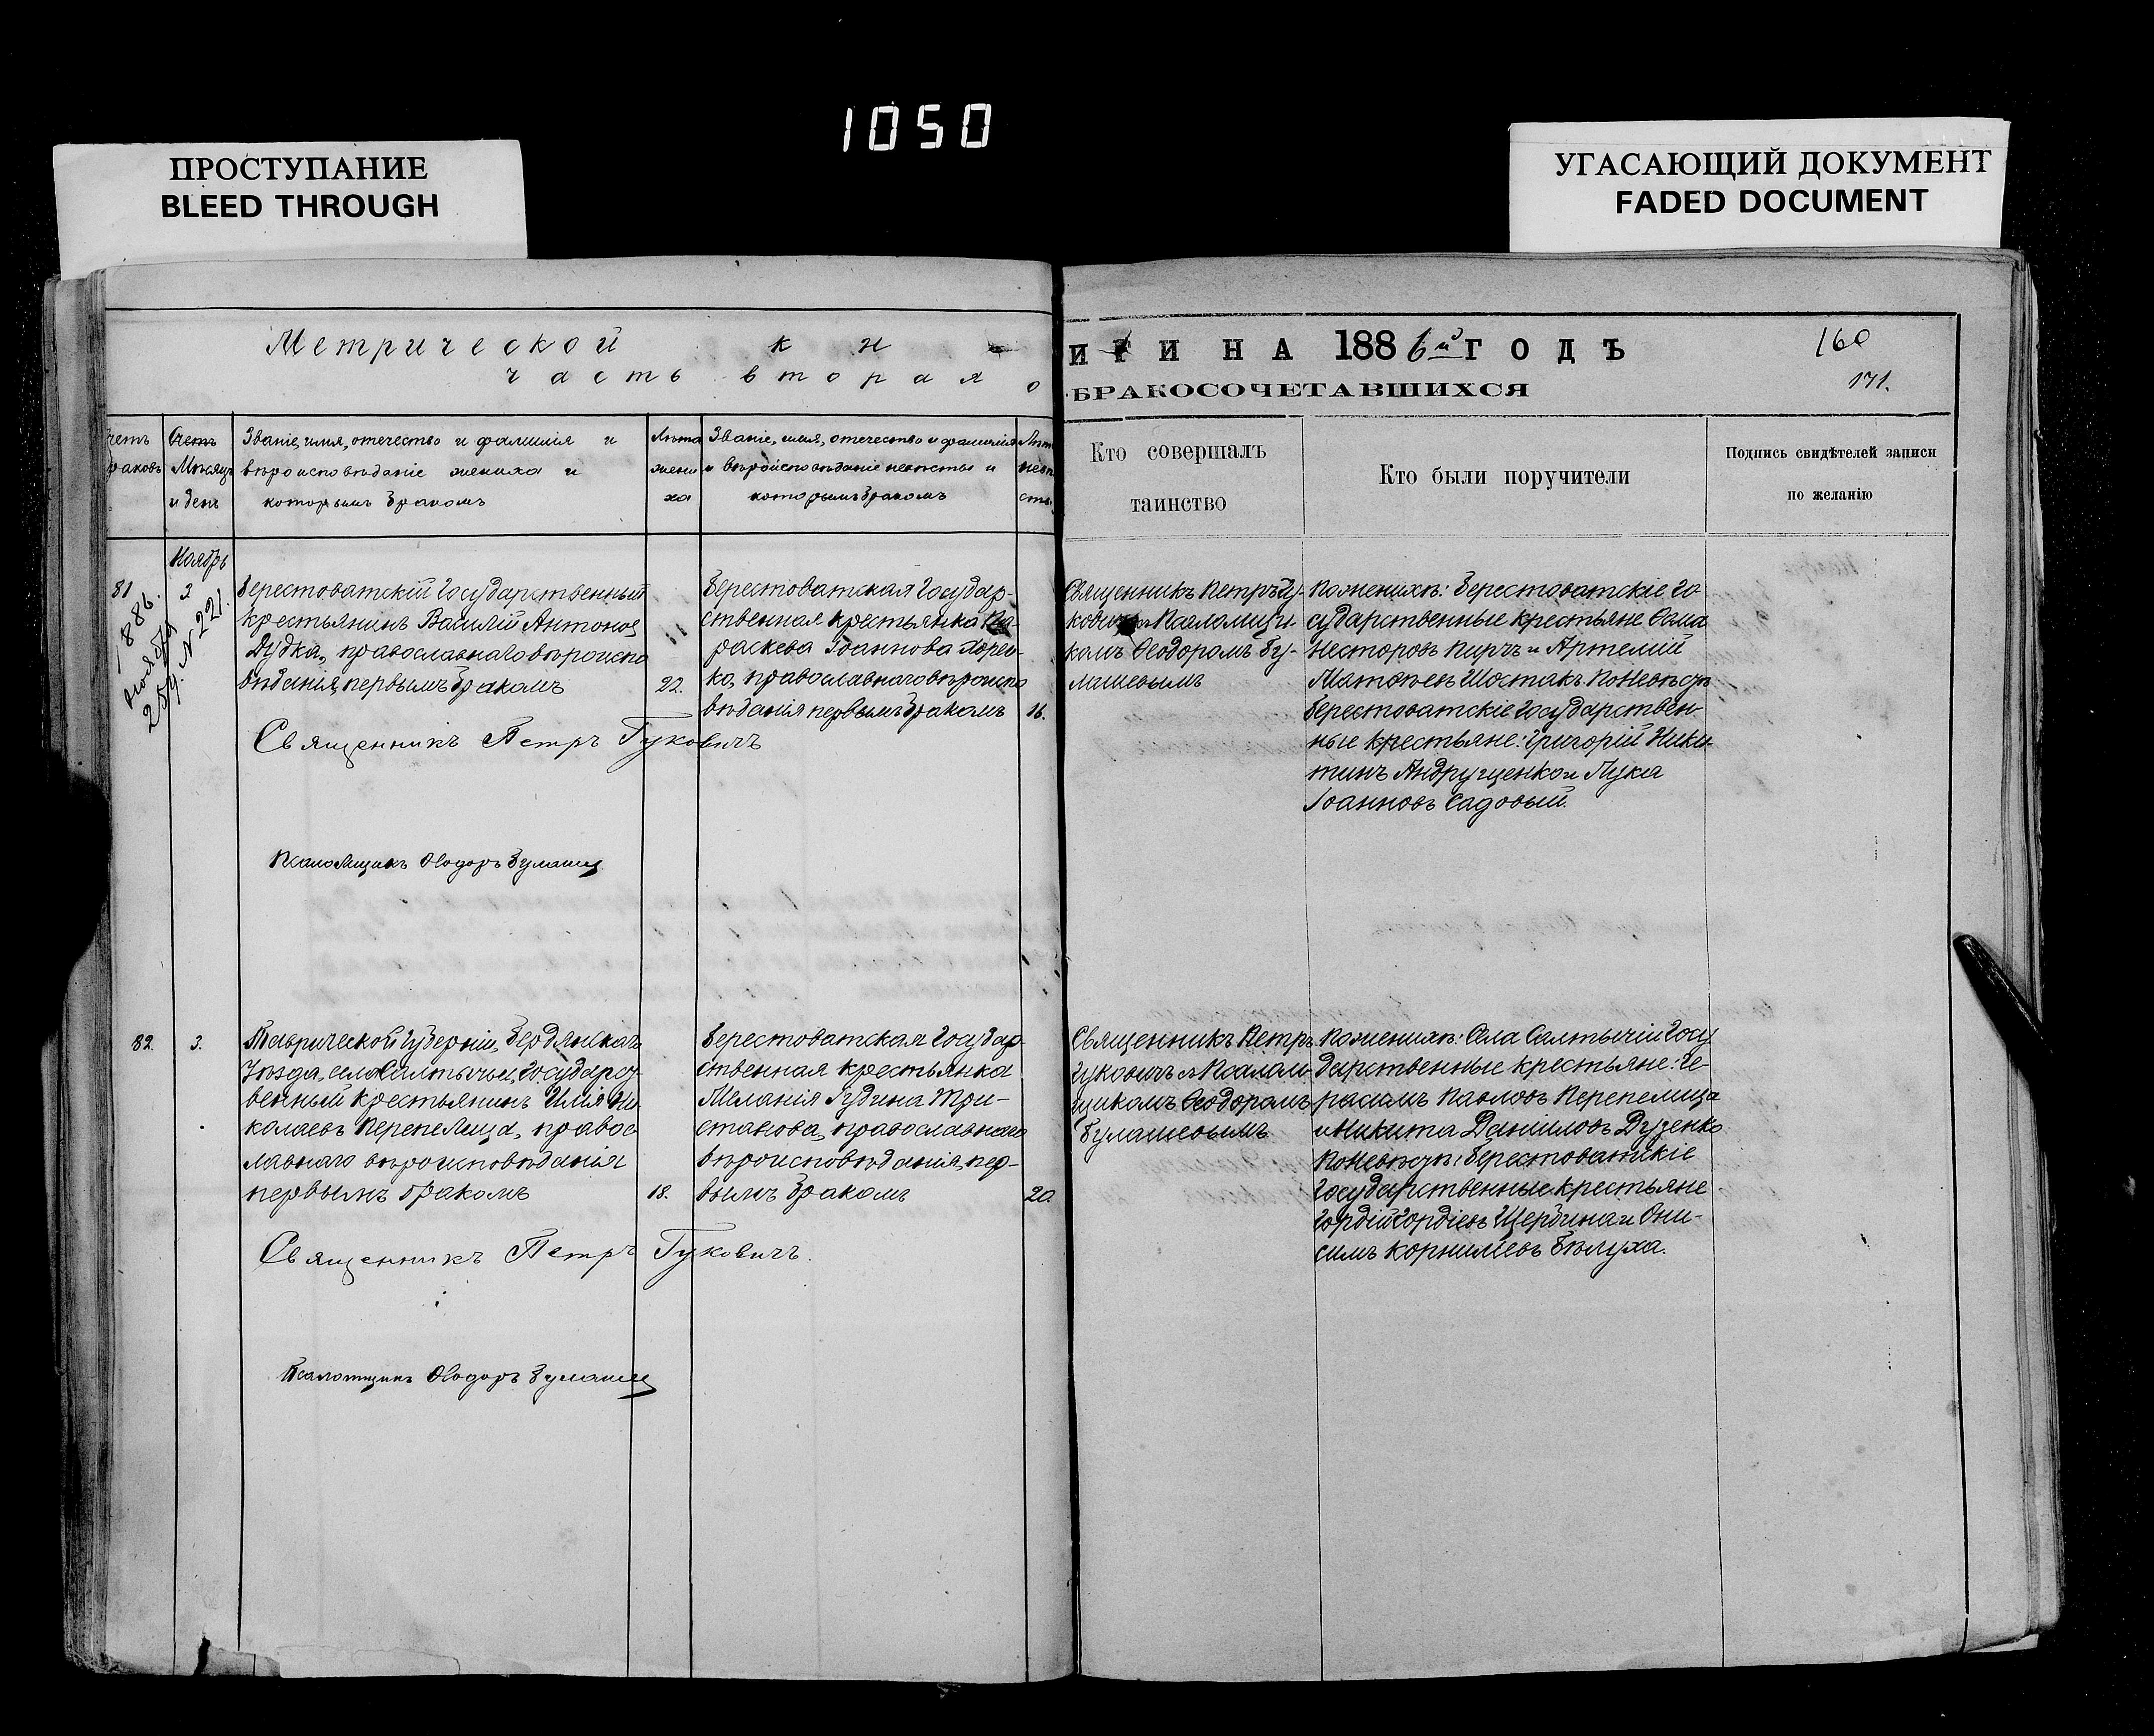 1050
ПРОСТУПАНИЕ
BLEED THROUGH
УГАСАЮЩИЙ ДОКУМЕНТ
FADED DOCUMENT
Метрической кн
часть вторая о
ИГИ НА 1886й ГОДЪ
БРАКОСОЧЕТАВШИХСЯ
160
171.
четъ
раковъ
Счетъ
Мѣсяцъ
и день
Званіе, имя, отечество и фамилія и
вѣроисповѣданіе жениха и
которымъ бракомъ
Лѣта
жени
ха
Званіе, имя, отечество и фамилія
и вѣроисповѣданіе невѣсты и
которымъ бракомъ
Лѣт
невѣ
сты
Кто совершалъ
таинство
Кто были поручители
Подпись свидѣтелей записи
по желанію
Ноябрь
81
3
1886.
ноября
25 д. N 221.
Берестоватскій Государственный
крестьянинъ Василій Антонов
Дудка, православнаго вѣроиспо
вѣданія, первымъ бракомъ
22.
Берестоватская Государ-
ственная крестьянка Па-
раскева Іоаннова
ко, православнаго вѣроиспо
вѣданія первымъ бракомъ
16.
Священникъ Петръ Гу-
ковичъ Псаломщи-
комъ Ѳеодоромъ Бу-
лашевымъ
По женихѣ: Берестоватскіе Го
сударственные крестьяне Савва
Несторовъ Кирчъ и Артемій
Матѳѣевъ Шостакъ. По невѣстѣ
Берестоватскіе Государствен-
ные крестьяне: Григорій Ники-
тинъ Андрущенко и Лука
Іоанновъ Садовый.
Священникъ Петръ Гуковичъ
Псаломщикъ Ѳеодоръ Булашев
82.
3.
Таврической Губерніи, Бердянскаго
Уѣзда, села Салтычьи, Государст-
венный крестьянинъ Илія Ни
колаевъ Перепелица, правос
лавнаго вѣроисповѣданія
первымъ бракомъ
18.
Берестоватская Государ
ственная крестьянка
Меланія Гудина Три-
станова, православнаго
вѣроисповѣданія, пер-
вымъ бракомъ
20.
Священникъ Петръ
Гуковичъ съ Псалом-
щикомъ Ѳеодоромъ
Булашевымъ
По женихѣ: Села Салтычіи Госу
дарственные крестьяне: Ге-
расимъ Павловъ Перепелица
и Никита Даніиловъ Дузенко
По невѣстѣ: Берестоватскіе
Государственные крестьяне
Гордій Гордіевъ Щербина и Они-
симъ Корниліевъ Бѣлуха.
Священникъ Петръ Гуковичъ.
Псаломщикъ Ѳеодоръ Булашев